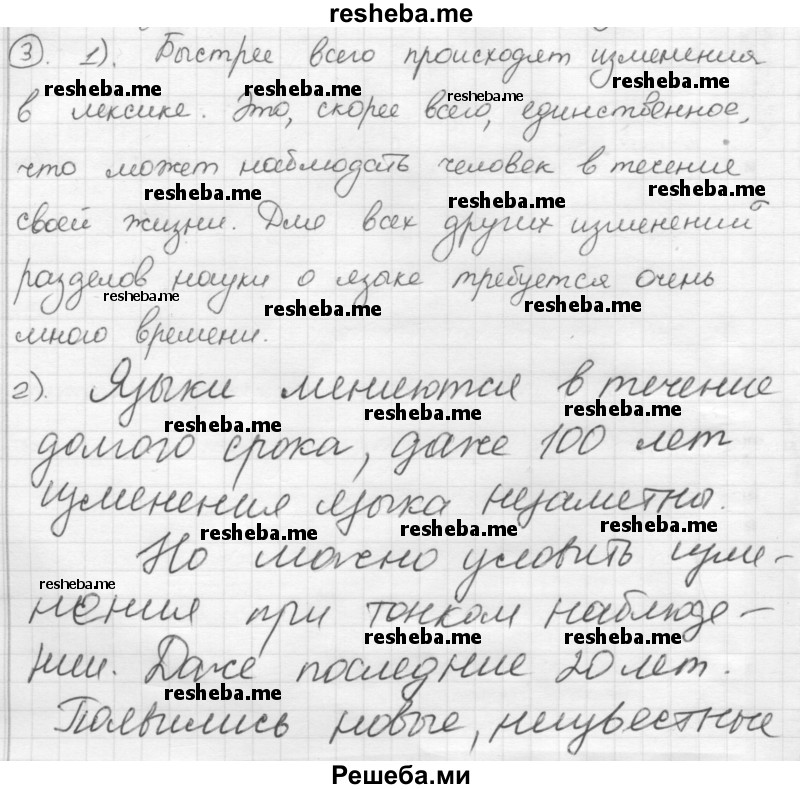 resheba.me
3. 1). Быстрее всего происходят изменения
resheba.me resheba.me resheba.me
в лексике. Это, скорее всего, единственное,
что может наблюдать человек в течение
resheba.me resheba.me resheba.me
своей жизни. Для всех других изменений
разделов науки о языке требуется очень
resheba.me resheba.me resheba.me
много времени.
2). Языки меняются в течение
resheba.me resheba.me resheba.me
долгого срока, даже 100 лет
изменения языка незаметны.
resheba.me resheba.me resheba.me
Но можно уловить изме-
resheba.me
нения при тонком наблюде-
resheba.me resheba.me
нии. Даже последние 20 лет.
resheba.me resheba.me resheba.me
Появились новые, неизвестные
Решеба.ми